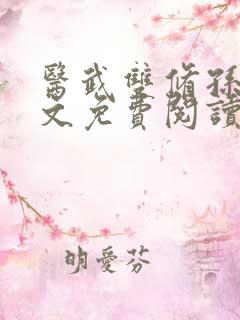 醫武雙脩孫
文免費閱讀
明愛芬